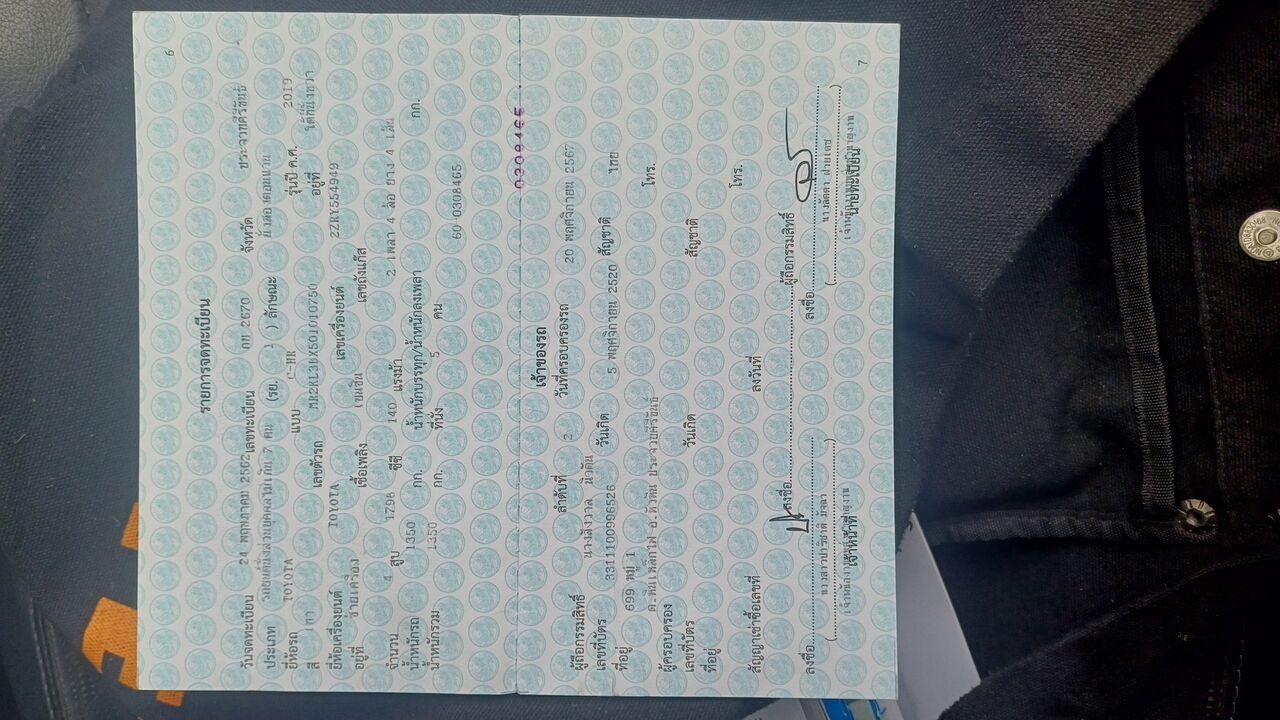 6
รายการจดทะเบียน
วันจดทะเบียน 24 พฤษภาคม 2562 เลขทะเบียน กท 2670 จังหวัด ประจวบคีรีขันธ์
ประเภท รถยนต์นั่งส่วนบุคคลไม่เกิน 7 คน (รย. 1 ) ลักษณะ นั่งสองตอนแวน
ยี่ห้อรถ TOYOTA แบบ C-HR รุ่นปี ค.ศ. 2019
สี เทา เลขตัวรถ อยู่ที่ ใต้ที่นั่งขวา
ยี่ห้อเครื่องยนต์ TOYOTA เลขเครื่องยนต์ 2ZRY554949
อยู่ที่ ซ้ายเครื่อง เชื้อเพลิง เบนซิน เลขถังแก๊ส
จำนวน 4 สูบ 1798 ซีซี 140 แรงม้า 2 เพลา 4 ล้อ ยาง 4 เส้น
น้ำหนักรถ 1350 กก. น้ำหนักบรรทุก/น้ำหนักลงเพลา กก.
น้ำหนักรวม 1350 กก. ที่นั่ง 5 คน 60-0308465
0308465
เจ้าของรถ
ลำดับที่ 2 วันที่ครอบครองรถ 20 พฤศจิกายน 2567
ผู้ถือกรรมสิทธิ์ นางสังวาล
เลขที่บัตร 3311100996526 วันเกิด 5 พฤศจิกายน 2520 สัญชาติ ไทย
ที่อยู่ 699 หมู่ 1 โทร.
ต.หินเหล็กไฟ อ.หัวหิน ประจวบคีรีขันธ์
ผู้ครอบครอง
เลขที่บัตร วันเกิด สัญชาติ
ที่อยู่ โทร.
สัญญาเช่าซื้อเลขที่ ลงวันที่
ลงชื่อ ผู้ถือกรรมสิทธิ์
ลงชื่อ ลงชื่อ
เจ้าหน้าที่ นายทะเบียน
7